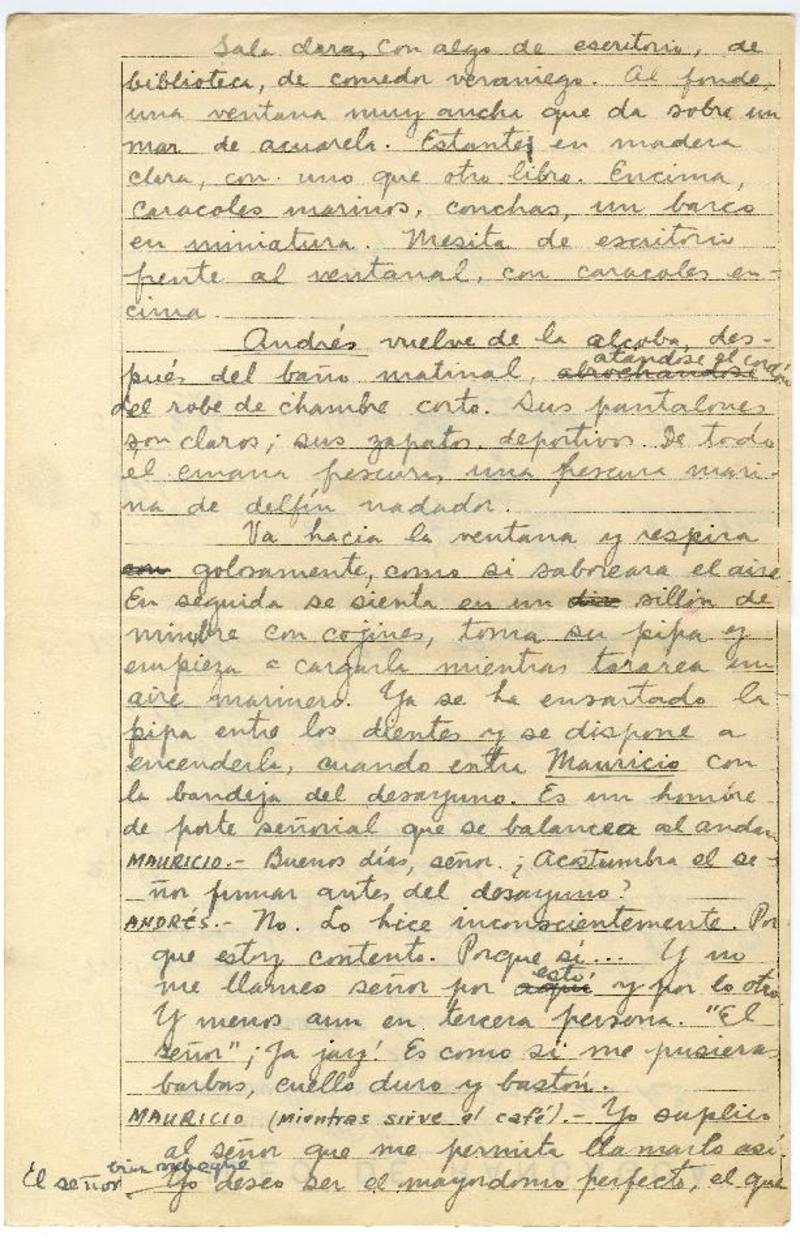 Sala clara, con algo de escritorio, de
biblioteca, de comedor veraniego. Al fondo,
una ventana muy ancha que da sobre un
mar de acuarela. Estantes en madera
clara, con uno que otro libro. Encima,
caracoles marinos, conchas, un barco
en miniatura. Mesita de escritorio
frente al ventanal, con caracoles en-
cima.
Andrés vuelve de la alcoba, des-
atándose el cordón
pués del baño matinal, abrochándose
del robe de chambre corto. Sus pantalones
son claros; sus zapatos, deportivos. De todo
él emana frescura, una frescura mari-
na de delfín nadador.
Va hacia la ventana y respira
con golosamente, como si saboreara el aire.
En seguida se sienta en un sillón de
mimbre con cojines, toma su pipa y
empieza a cargarla mientras tararea un
aire marinero. Ya se ha ensartado la
pipa entre los dientes y se dispone a
encenderla, cuando entra Mauricio con
la bandeja del desayuno. Es un hombre
de porte señorial que se balancea al andar.
MAURICIO.- Buenos días, señor. ¿Acostumbra el se-
ñor fumar antes del desayuno?
ANDRÉS.- No. Lo hice inconscientemente. Por
que estoy contento. Porque sí... Y no
esto
me llames señor por aquí y por lo otro.
Y menos aun en tercera persona. "El
señor" ¡Ja jay! Es como si me pusieras
barbas, cuello duro y bastón.
MAURICIO (mientras sirve el café).- Yo suplico
al señor que me permita llamarlo así.
El señor bien sabe que
Yo deseo ser el mayordomo perfecto, el que